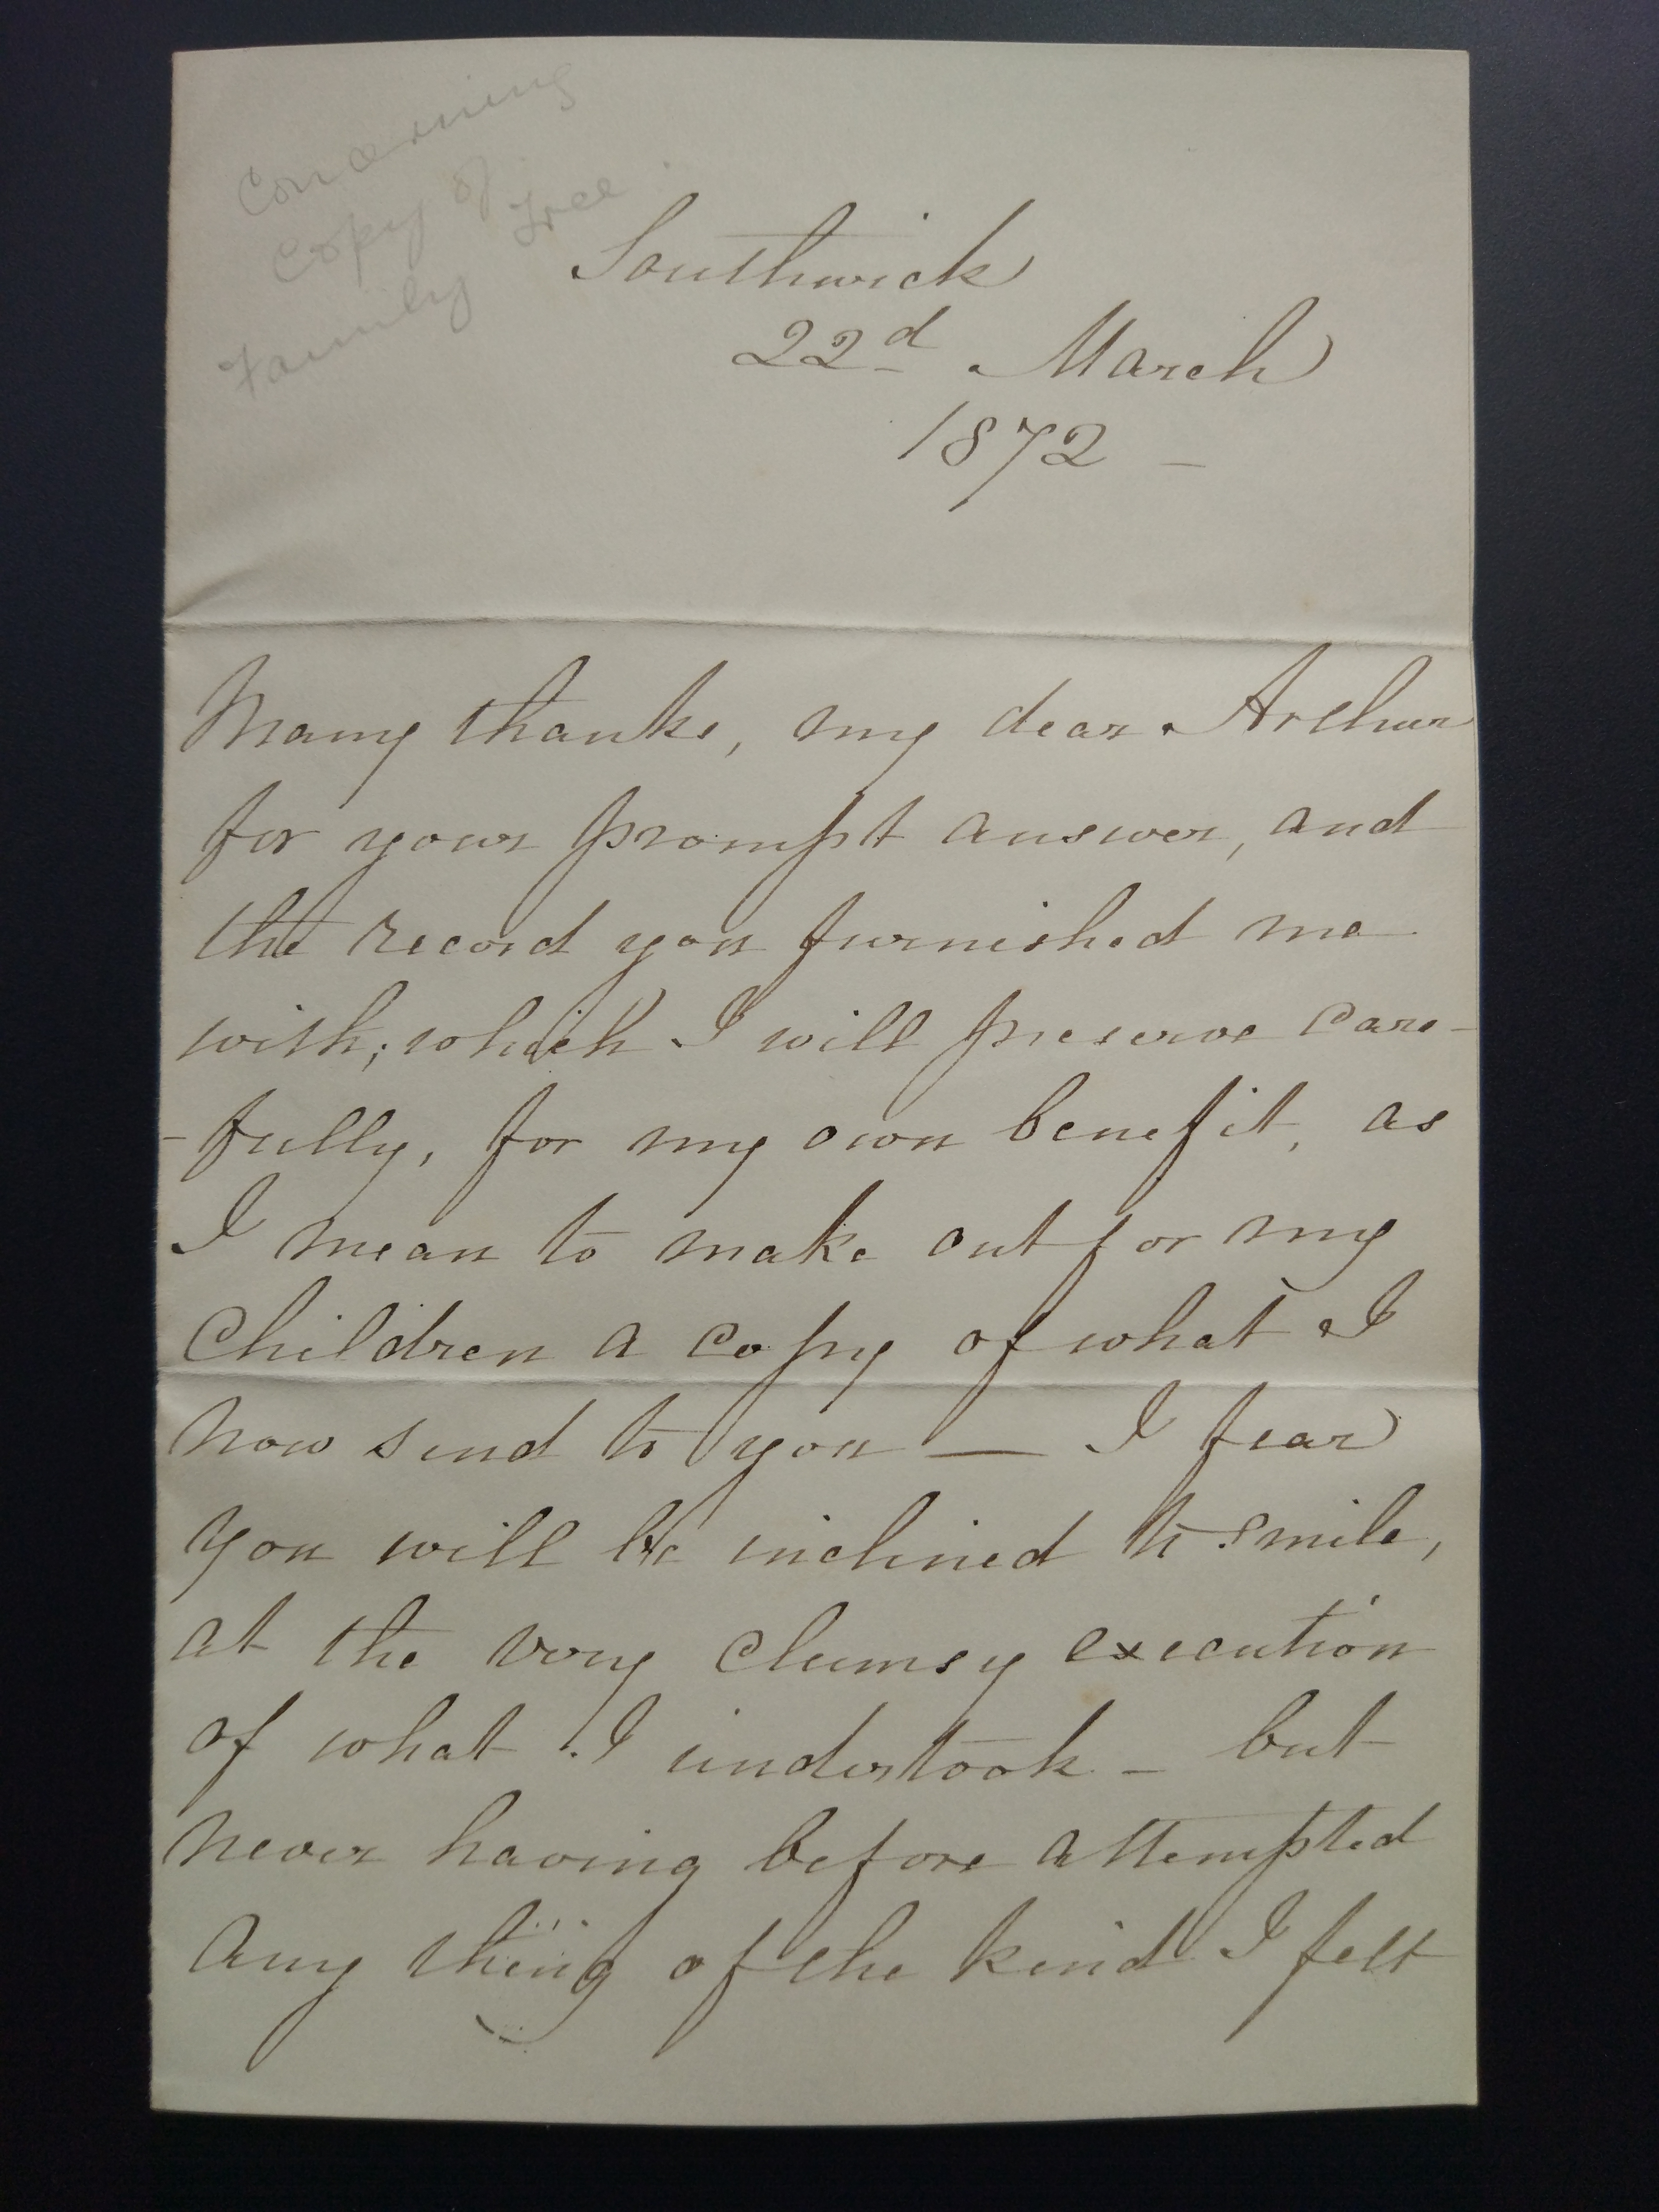 Concerning
Copy of
Family Tree
Southwick
22d March
1872 -
Many thanks, my dear Arthur
for your prompt answer, and
the record you furnished me
with; which I will preserve care-
-fully, for my own benefit, as
I mean to make out for my
Children a copy of what I
now send to you — I fear
you will be inclined to smile,
at the very clumsy execution
of what I undertook - but
never having before attempted
any thing of the kind I felt